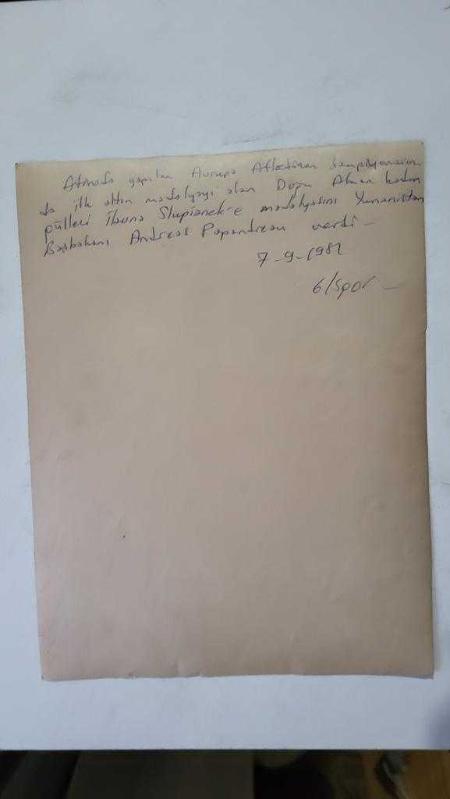 Atinada yapılan Avrupa Atletizm Şampiyonasın
da ilk altın madalyayı alan Doğu Alman kadın
gülleci İlona Slupianek-e madalyasını Yunanistan
Başbakanı Andreas Papandreau verdi -
7-9-1982
6/Spor -